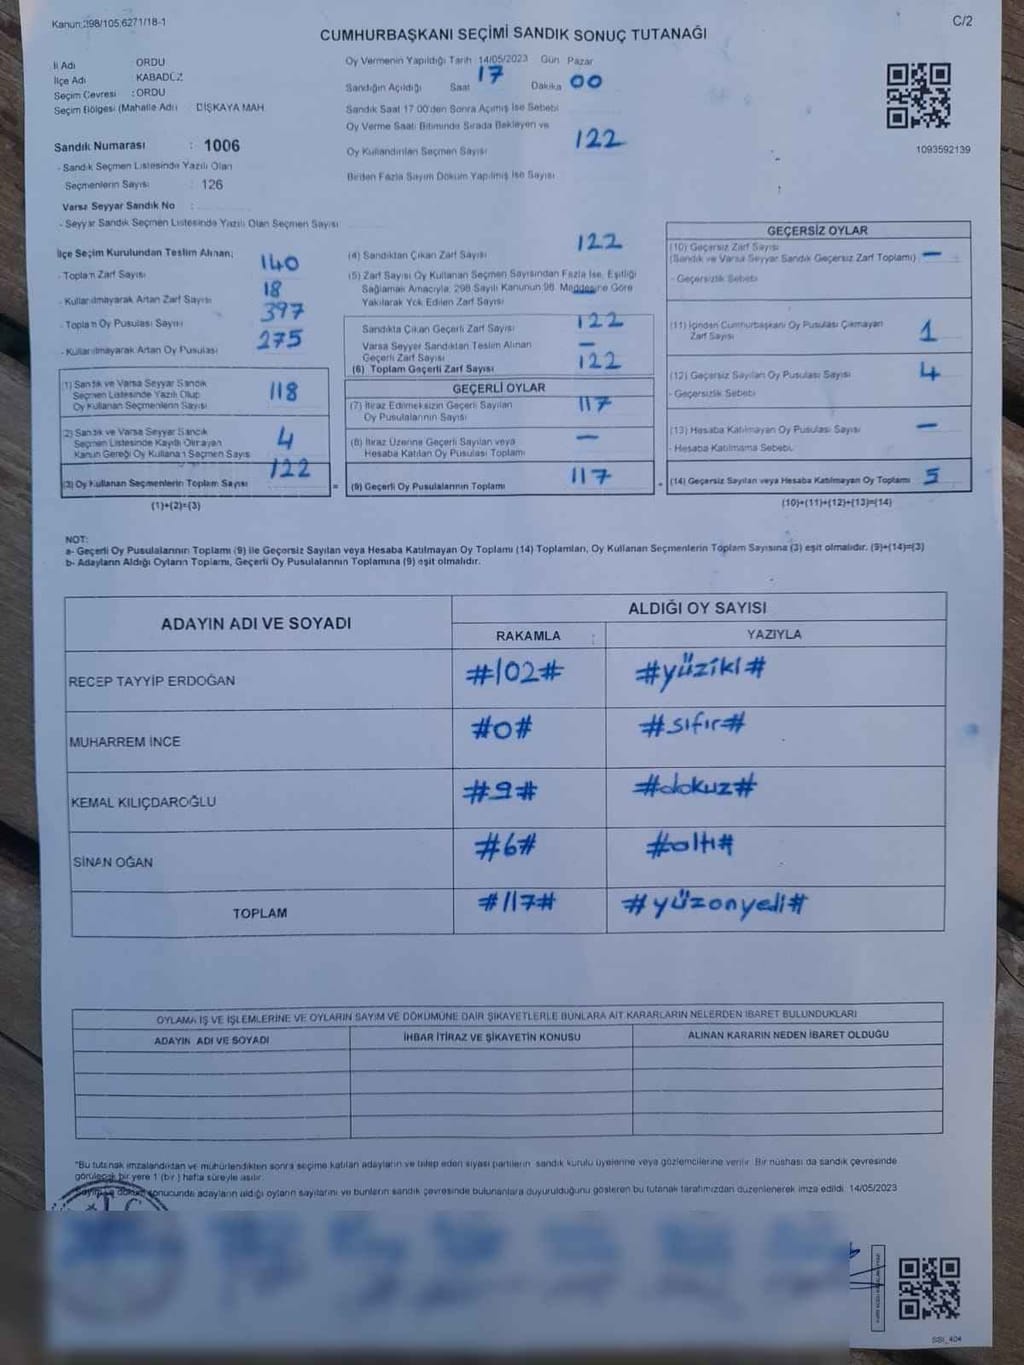 Kanun:298/105,6271/18-1
C/2
CUMHURBAŞKANI SEÇİMİ SANDIK SONUÇ TUTANAĞI
İl Adı : ORDU
İlçe Adı : KABADÜZ
Seçim Çevresi : ORDU
Seçim Bölgesi (Mahalle Adı) : DIŞKAYA MAH
Sandık Numarası : 1006
- Sandık Seçmen Listesinde Yazılı Olan
Seçmenlerin Sayısı : 126
Varsa Seyyar Sandık No :
- Seyyar Sandık Seçmen Listesinde Yazılı Olan Seçmen Sayısı
Oy Vermenin Yapıldığı Tarih 14/05/2023 Gün Pazar
Sandığın Açıldığı Saat 17 Dakika 00
Sandık Saat 17 00'den Sonra Açımış İse Sebebi
Oy Verme Saati Bitiminde Sırada Bekleyen ve
Oy Kullandırılan Seçmen Sayısı 122
Birden Fazla Sayım Döküm Yapılmış İse Sayısı
1093592139
İlçe Seçim Kurulundan Teslim Alınan;
- Toplam Zarf Sayısı 140
- Kullanılmayarak Artan Zarf Sayısı 18
- Toplam Oy Pusulası Sayısı 397
- Kullanılmayarak Artan Oy Pusulası 275
1) Sandık ve Varsa Seyyar Sandık
Seçmen Listesinde Yazılı Olup
Oy Kullanan Seçmenlerin Sayısı 118
(2) Sandık ve Varsa Seyyar Sandık
Seçmen Listesinde Kayıtlı Olmayan
Kanun Gereği Oy Kullanan Seçmen Sayısı 4
(3) Oy Kullanan Seçmenlerin Toplam Sayısı 122
(1)+(2)=(3)
(4) Sandıktan Çıkan Zarf Sayısı 122
(5) Zarf Sayısı Oy Kullanan Seçmen Sayısından Fazla İse, Eşitliği
Sağlamak Amacıyla, 298 Sayılı Kanunun 98. Maddesine Göre
Yakılarak Yok Edilen Zarf Sayısı —
Sandıkta Çıkan Geçerli Zarf Sayısı 122
Varsa Seyyer Sandıktan Teslim Alınan
Geçerli Zarf Sayısı —
(6) Toplam Geçerli Zarf Sayısı 122
GEÇERLİ OYLAR
(7) İtiraz Edilmeksizin Geçerli Sayılan
Oy Pusulalarının Sayısı 117
(8) İtiraz Üzerine Geçerli Sayılan veya
Hesaba Katılan Oy Pusulası Toplamı —
= (9) Geçerli Oy Pusulalarının Toplamı 117
GEÇERSİZ OYLAR
(10) Geçersiz Zarf Sayısı
(Sandık ve Varsa Seyyar Sandık Geçersiz Zarf Toplamı) —
- Geçersizlik Sebebi
(11) İçinden Cumhurbaşkanı Oy Pusulası Çıkmayan
Zarf Sayısı 1
(12) Geçersiz Sayılan Oy Pusulası Sayısı 4
- Geçersizlik Sebebi
(13) Hesaba Katılmayan Oy Pusulası Sayısı —
- Hesaba Katılmama Sebebi,
+ (14) Geçersiz Sayılan veya Hesaba Katılmayan Oy Toplamı 5
(10)+(11)+(12)+(13)=(14)
NOT:
a- Geçerli Oy Pusulalarının Toplamı (9) ile Geçersiz Sayılan veya Hesaba Katılmayan Oy Toplamı (14) Toplamları, Oy Kullanan Seçmenlerin Toplam Sayısına (3) eşit olmalıdır. (9)+(14)=(3)
b- Adayların Aldığı Oyların Toplamı, Geçerli Oy Pusulalarının Toplamına (9) eşit olmalıdır.
ADAYIN ADI VE SOYADI
ALDIĞI OY SAYISI
RAKAMLA YAZIYLA
RECEP TAYYİP ERDOĞAN #102# #yüziki#
MUHARREM İNCE #0# #sıfır#
KEMAL KILIÇDAROĞLU #9# #dokuz#
SİNAN OĞAN #6# #altı#
TOPLAM #117# #yüzonyedi#
OYLAMA İŞ VE İŞLEMLERİNE VE OYLARIN SAYIM VE DÖKÜMÜNE DAİR ŞİKAYETLERLE BUNLARA AİT KARARLARIN NELERDEN İBARET BULUNDUKLARI
ADAYIN ADI VE SOYADI İHBAR İTİRAZ VE ŞİKAYETİN KONUSU ALINAN KARARIN NEDEN İBARET OLDUĞU
*Bu tutanak imzalandıktan ve mühürlendikten sonra seçime katılan adayların ve talep eden siyasi partilerin sandık kurulu üyelerine veya gözlemcilerine verilir. Bir nüshası da sandık çevresinde
görülecek bir yere 1 (bir) hafta süreyle asılır.
Sayım ve döküm sonucunda adayların aldığı oyların sayılarını ve bunların sandık çevresinde bulunanlara duyurulduğunu gösteren bu tutanak tarafımızdan düzenlenerek imza edildi. 14/05/2023